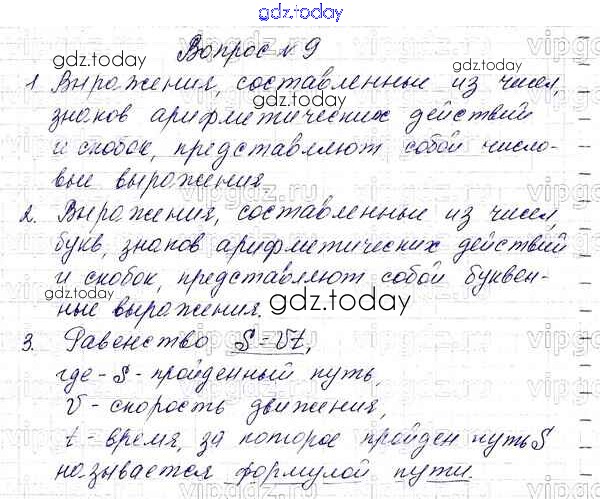 gdz.today
Вопрос № 9
gdz.today gdz.today
1 Выражения, составленные из чисел,
gdz.today
знаков арифметических действий
и скобок, представляют собой число-
вые выражения.
2. Выражения, составленные из чисел,
букв, знаков арифметических действий
и скобок, представляют собой буквен-
ные выражения.
gdz.today
3. Равенство S=Vt,
где - S - пройденный путь,
V - скорость движения,
t - время, за которое пройден путь S
называется формулой пути.